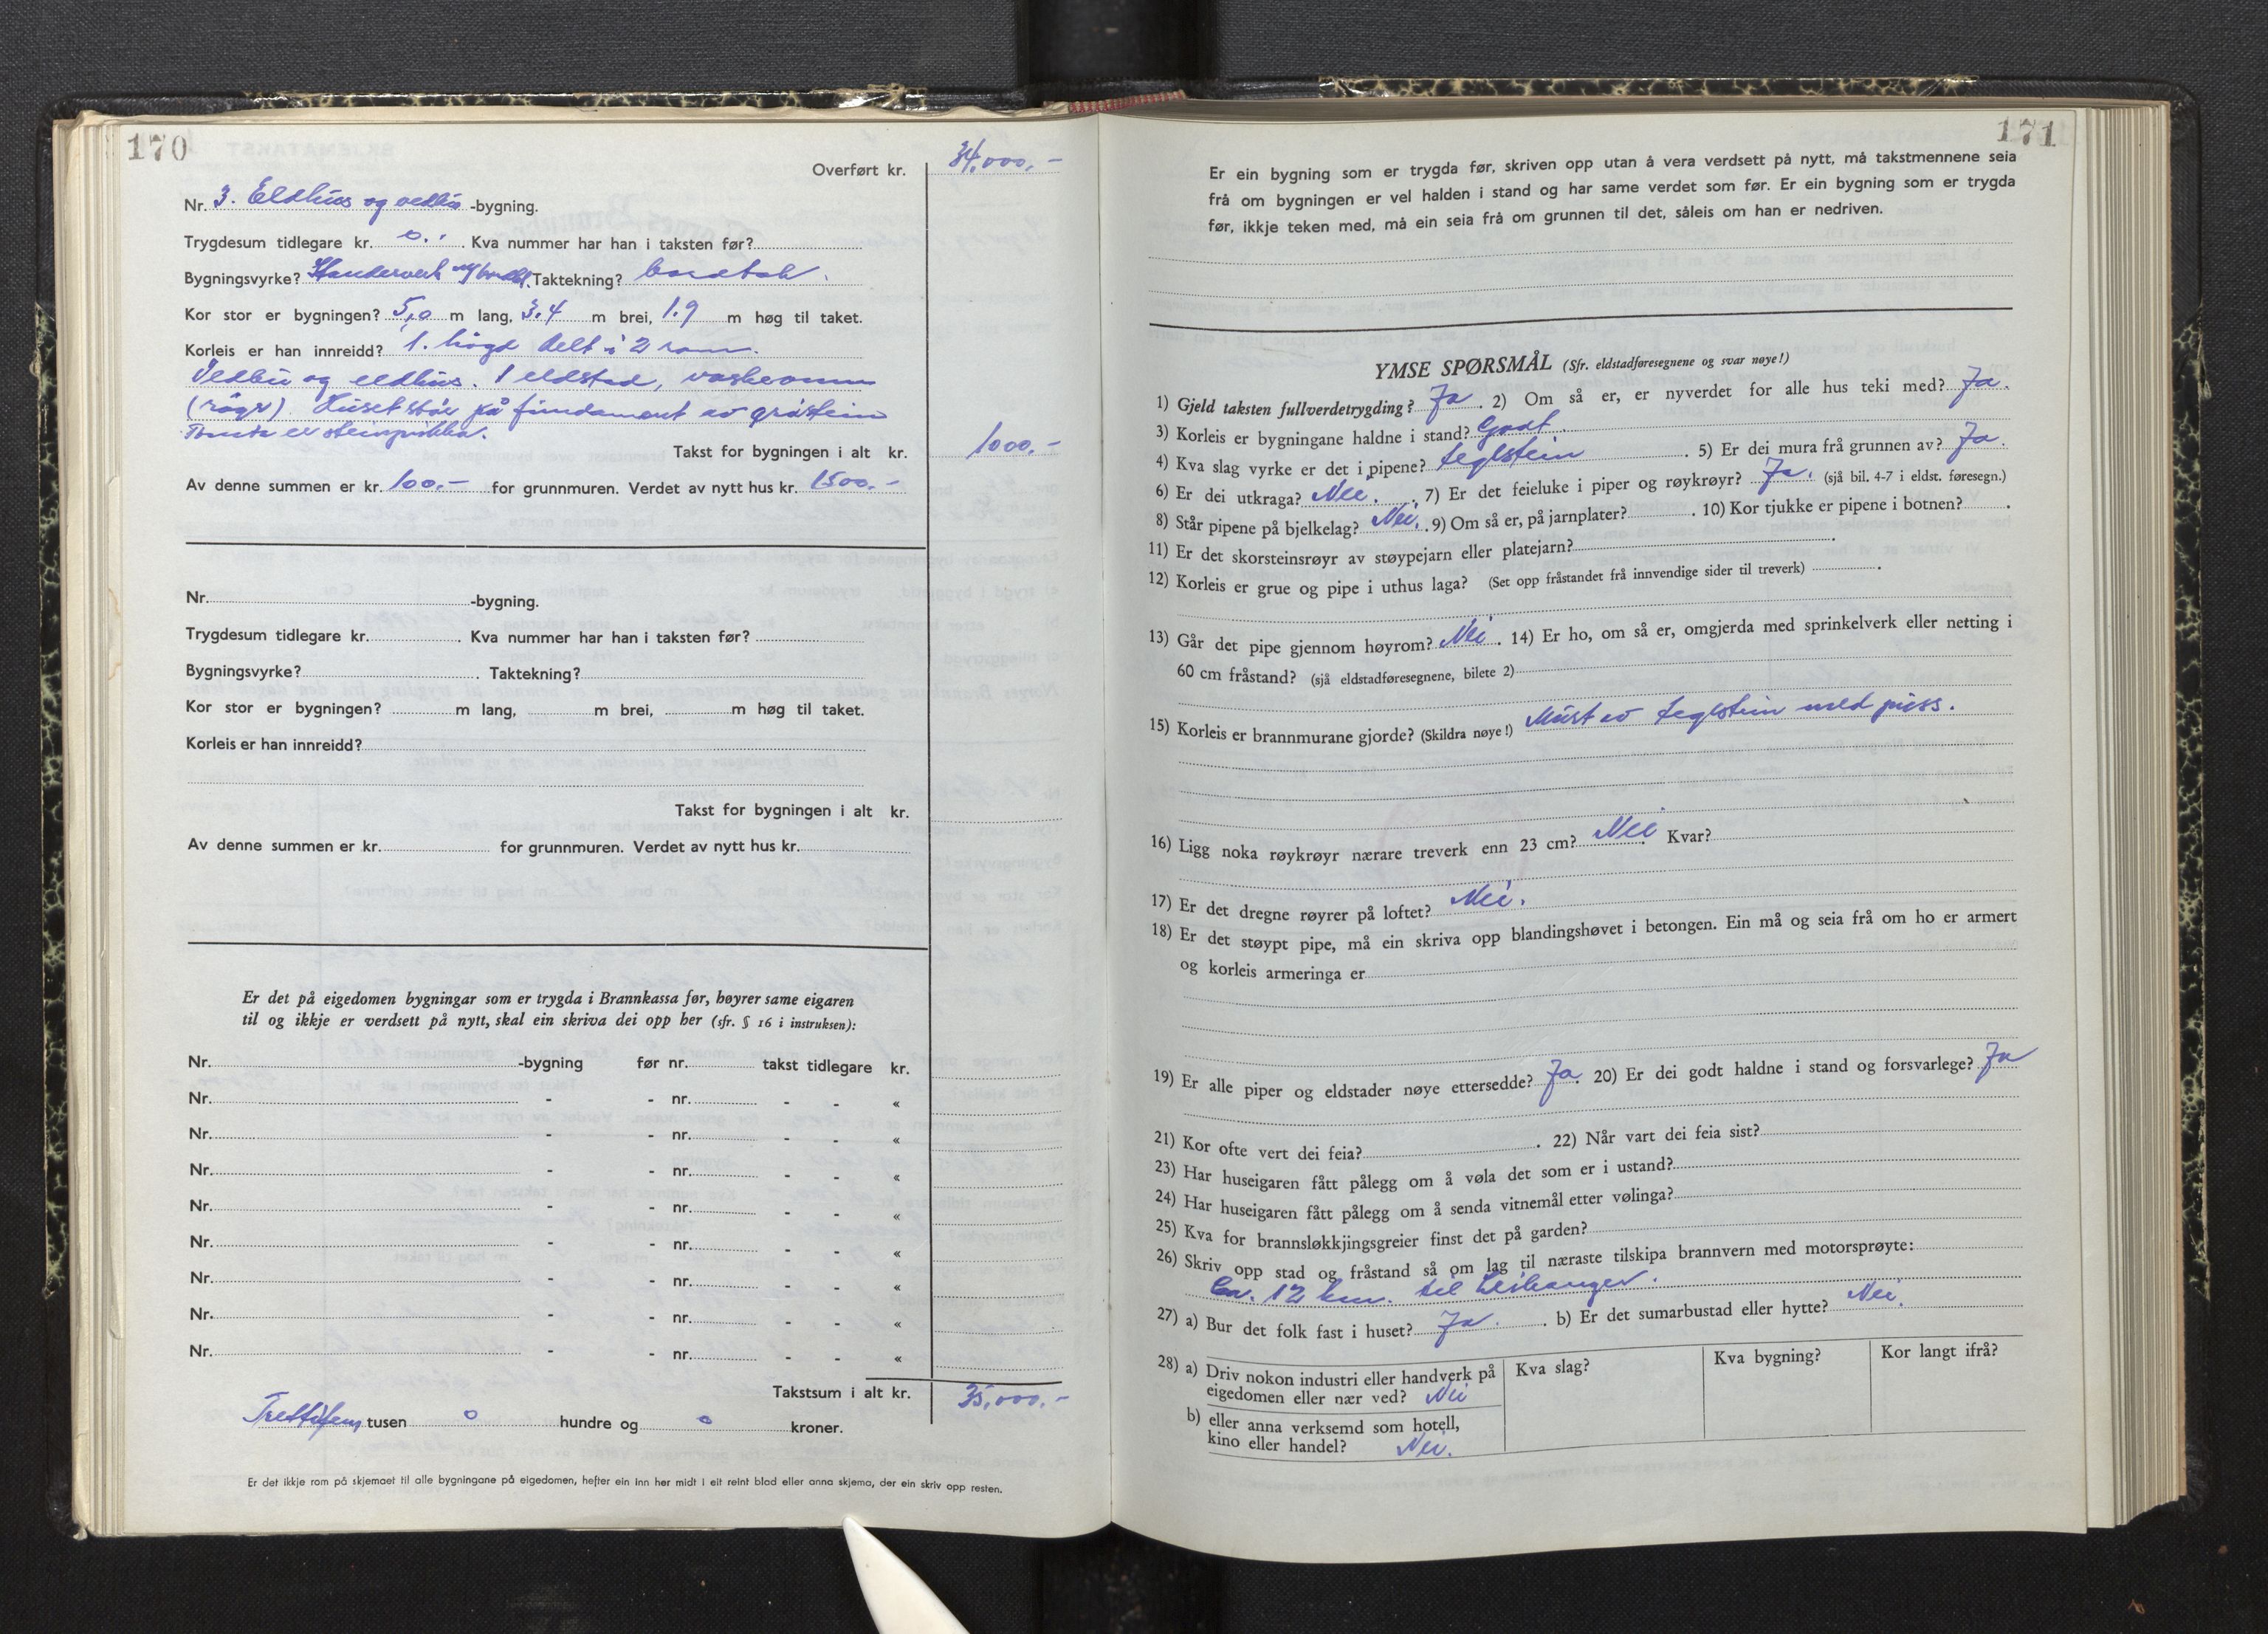 170
Overført kr. 34.000,-
Nr. 3. Eldhus og vedbu -bygning.
Trygdesum tidlegare kr. 0. Kva nummer har han i taksten før?
Bygningsvyrke? Standerverk Taktekning? bordtak.
Kor stor er bygningen? 5,0 m lang, 3.4 m brei, 1.9 m høg til taket.
Korleis er han innreidd? 1. høgd delt i 2 rom.
Vedbu og eldhus. 1 eldstad, vaskeomn
(røyr). Huset står på fundament av gråstein
Tomta er
Takst for bygningen i alt kr. 1000.-
Av denne summen er kr. 100.- for grunnmuren. Verdet av nytt hus kr. 1500.-
Nr. -bygning.
Trygdesum tidlegare kr. Kva nummer har han i taksten før?
Bygningsvyrke? Taktekning?
Kor stor er bygningen? m lang, m brei, m høg til taket.
Korleis er han innreidd?
Takst for bygningen i alt kr.
Av denne summen er kr. for grunnmuren. Verdet av nytt hus kr.
Er det på eigedomen bygningar som er trygda i Brannkassa før, høyrer same eigaren
til og ikkje er verdsett på nytt, skal ein skriva dei opp her (sfr. § 16 i instruksen):
Nr. -bygning før nr. takst tidlegare kr.
Nr. - - nr. - - «
Nr. - - nr. - - «
Nr. - - nr. - - «
Nr. - - nr. - - «
Nr. - - nr. - - «
Nr. - - nr. - - «
Nr. - - nr. - - «
Nr. - - nr. - - «
Takstsum i alt kr. 35,000.-
Trettifem tusen 0 hundre og 0 kroner.
Er det ikkje rom på skjemaet til alle bygningane på eigedomen, hefter ein inn her midt i eit reint blad eller anna skjema, der ein skriv opp resten.
171
Er ein bygning som er trygda før, skriven opp utan å vera verdsett på nytt, må takstmennene seia
frå om bygningen er vel halden i stand og har same verdet som før. Er ein bygning som er trygda
før, ikkje teken med, må ein seia frå om grunnen til det, såleis om han er nedriven.
YMSE SPØRSMÅL (Sfr. eldstadføresegnene og svar nøye!)
1) Gjeld taksten fullverdetrygding? Ja. 2) Om så er, er nyverdet for alle hus teki med? Ja.
3) Korleis er bygningane haldne i stand? Godt.
4) Kva slag vyrke er det i pipene? teglstein. 5) Er dei mura frå grunnen av? Ja.
6) Er dei utkraga? Nei. 7) Er det feieluke i piper og røykrøyr? Ja. (sjå bil. 4-7 i eldst. føresegn.)
8) Står pipene på bjelkelag? Nei. 9) Om så er, på jarnplater? 10) Kor tjukke er pipene i botnen?
11) Er det skorsteinsrøyr av støypejarn eller platejarn?
12) Korleis er grue og pipe i uthus laga? (Set opp fråstandet frå innvendige sider til treverk)
13) Går det pipe gjennom høyrom? Nei. 14) Er ho, om så er, omgjerda med sprinkelverk eller netting i
60 cm fråstand? (sjå eldstadføresegnene, bilete 2)
15) Korleis er brannmurane gjorde? (Skildra nøye!) Murt av teglstein med puss.
16) Ligg noka røykrøyr nærare treverk enn 23 cm? Nei Kvar?
17) Er det dregne røyrer på loftet? Nei.
18) Er det støypt pipe, må ein skriva opp blandingshøvet i betongen. Ein må og seia frå om ho er armert
og korleis armeringa er
19) Er alle piper og eldstader nøye ettersedde? Ja. 20) Er dei godt haldne i stand og forsvarlege? Ja
21) Kor ofte vert dei feia? 22) Når vart dei feia sist?
23) Har huseigaren fått pålegg om å vøla det som er i ustand?
24) Har huseigaren fått pålegg om å senda vitnemål etter vølinga?
25) Kva for brannsløkkjingsgreier finst det på garden?
26) Skriv opp stad og fråstand så om lag til næraste tilskipa brannvern med motorsprøyte:
Ca. 12 km. til Leikanger.
27) a) Bur det folk fast i huset? Ja. b) Er det sumarbustad eller hytte? Nei.
28) a) Driv nokon industri eller handverk på Kva slag? Kva bygning? Kor langt ifrå?
eigedomen eller nær ved? Nei
b) eller anna verksemd som hotell,
kino eller handel? Nei.